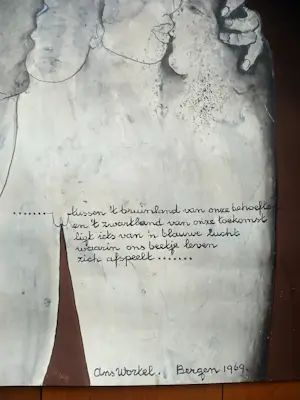 ....... tussen 't bruinland van onze behoeften
en 't zwartland van onze toekomst
ligt iets van 'n blauwe lucht
waarin ons beetje leven
zich afspeelt .......
Ans Wortel. Bergen 1969.